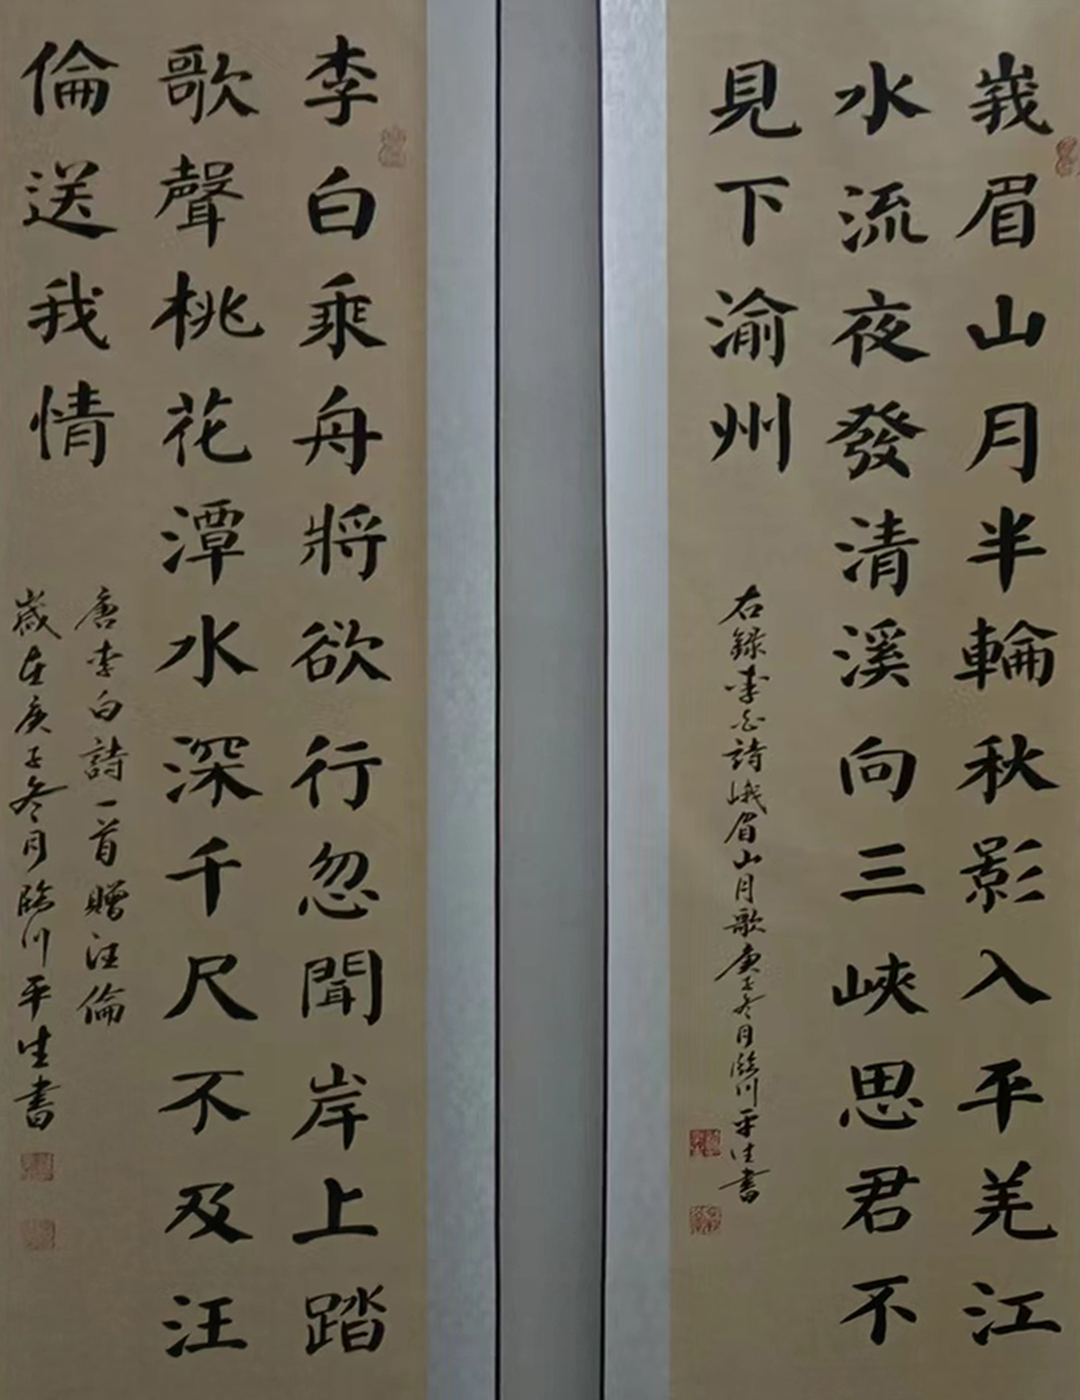 峩眉山月半輪秋影入平羌江
水流夜發清溪向三峽思君不
見下渝州
右録李白詩峨眉山月歌庚子冬月臨川平生書
李白乘舟將欲行忽聞岸上踏
歌聲桃花潭水深千尺不及汪
倫送我情
唐李白詩一首贈汪倫
歲在庚子冬月臨川平生書